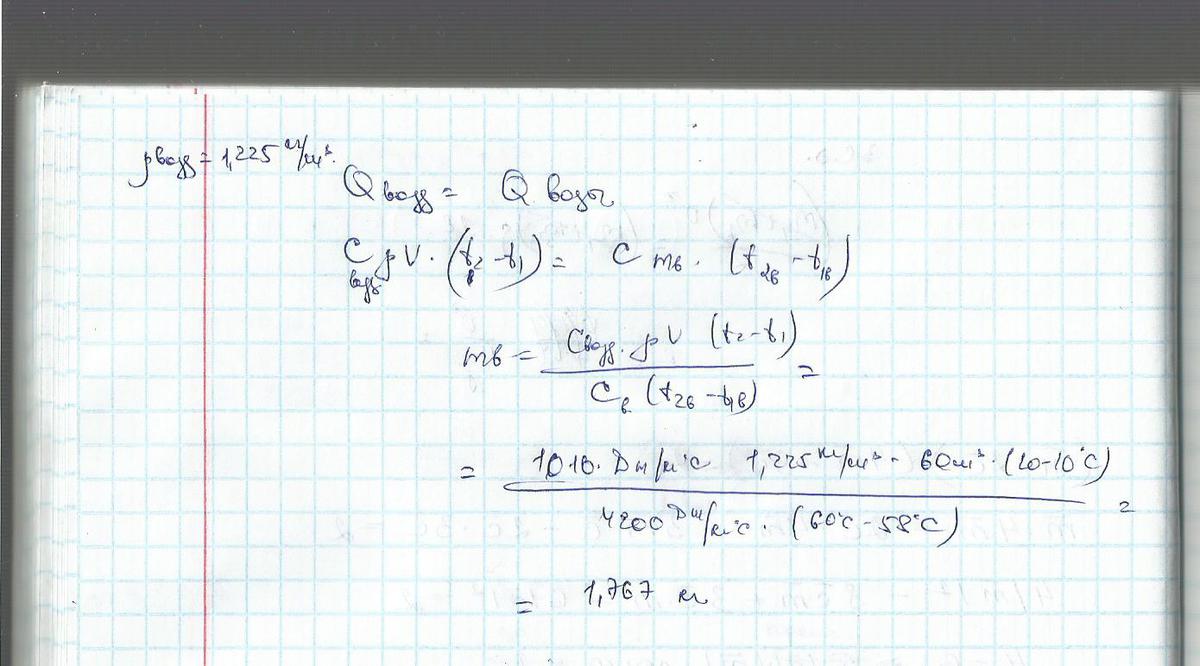 ρ возд = 1,225 кг/м³.
Q возд = Q воды
C возд ρ V · (t₂ - t₁) = C mв · (t₂в - t₁в)
mв = Cвозд. ρ V (t₂ - t₁) / Cв (t₂в - t₁в) =
= 1010 · Дж/кг°C 1,225 кг/м³ · 60 м³ · (20-10°C) / 4200 Дж/кг°C · (60°C - 58°C) =
= 1,767 кг